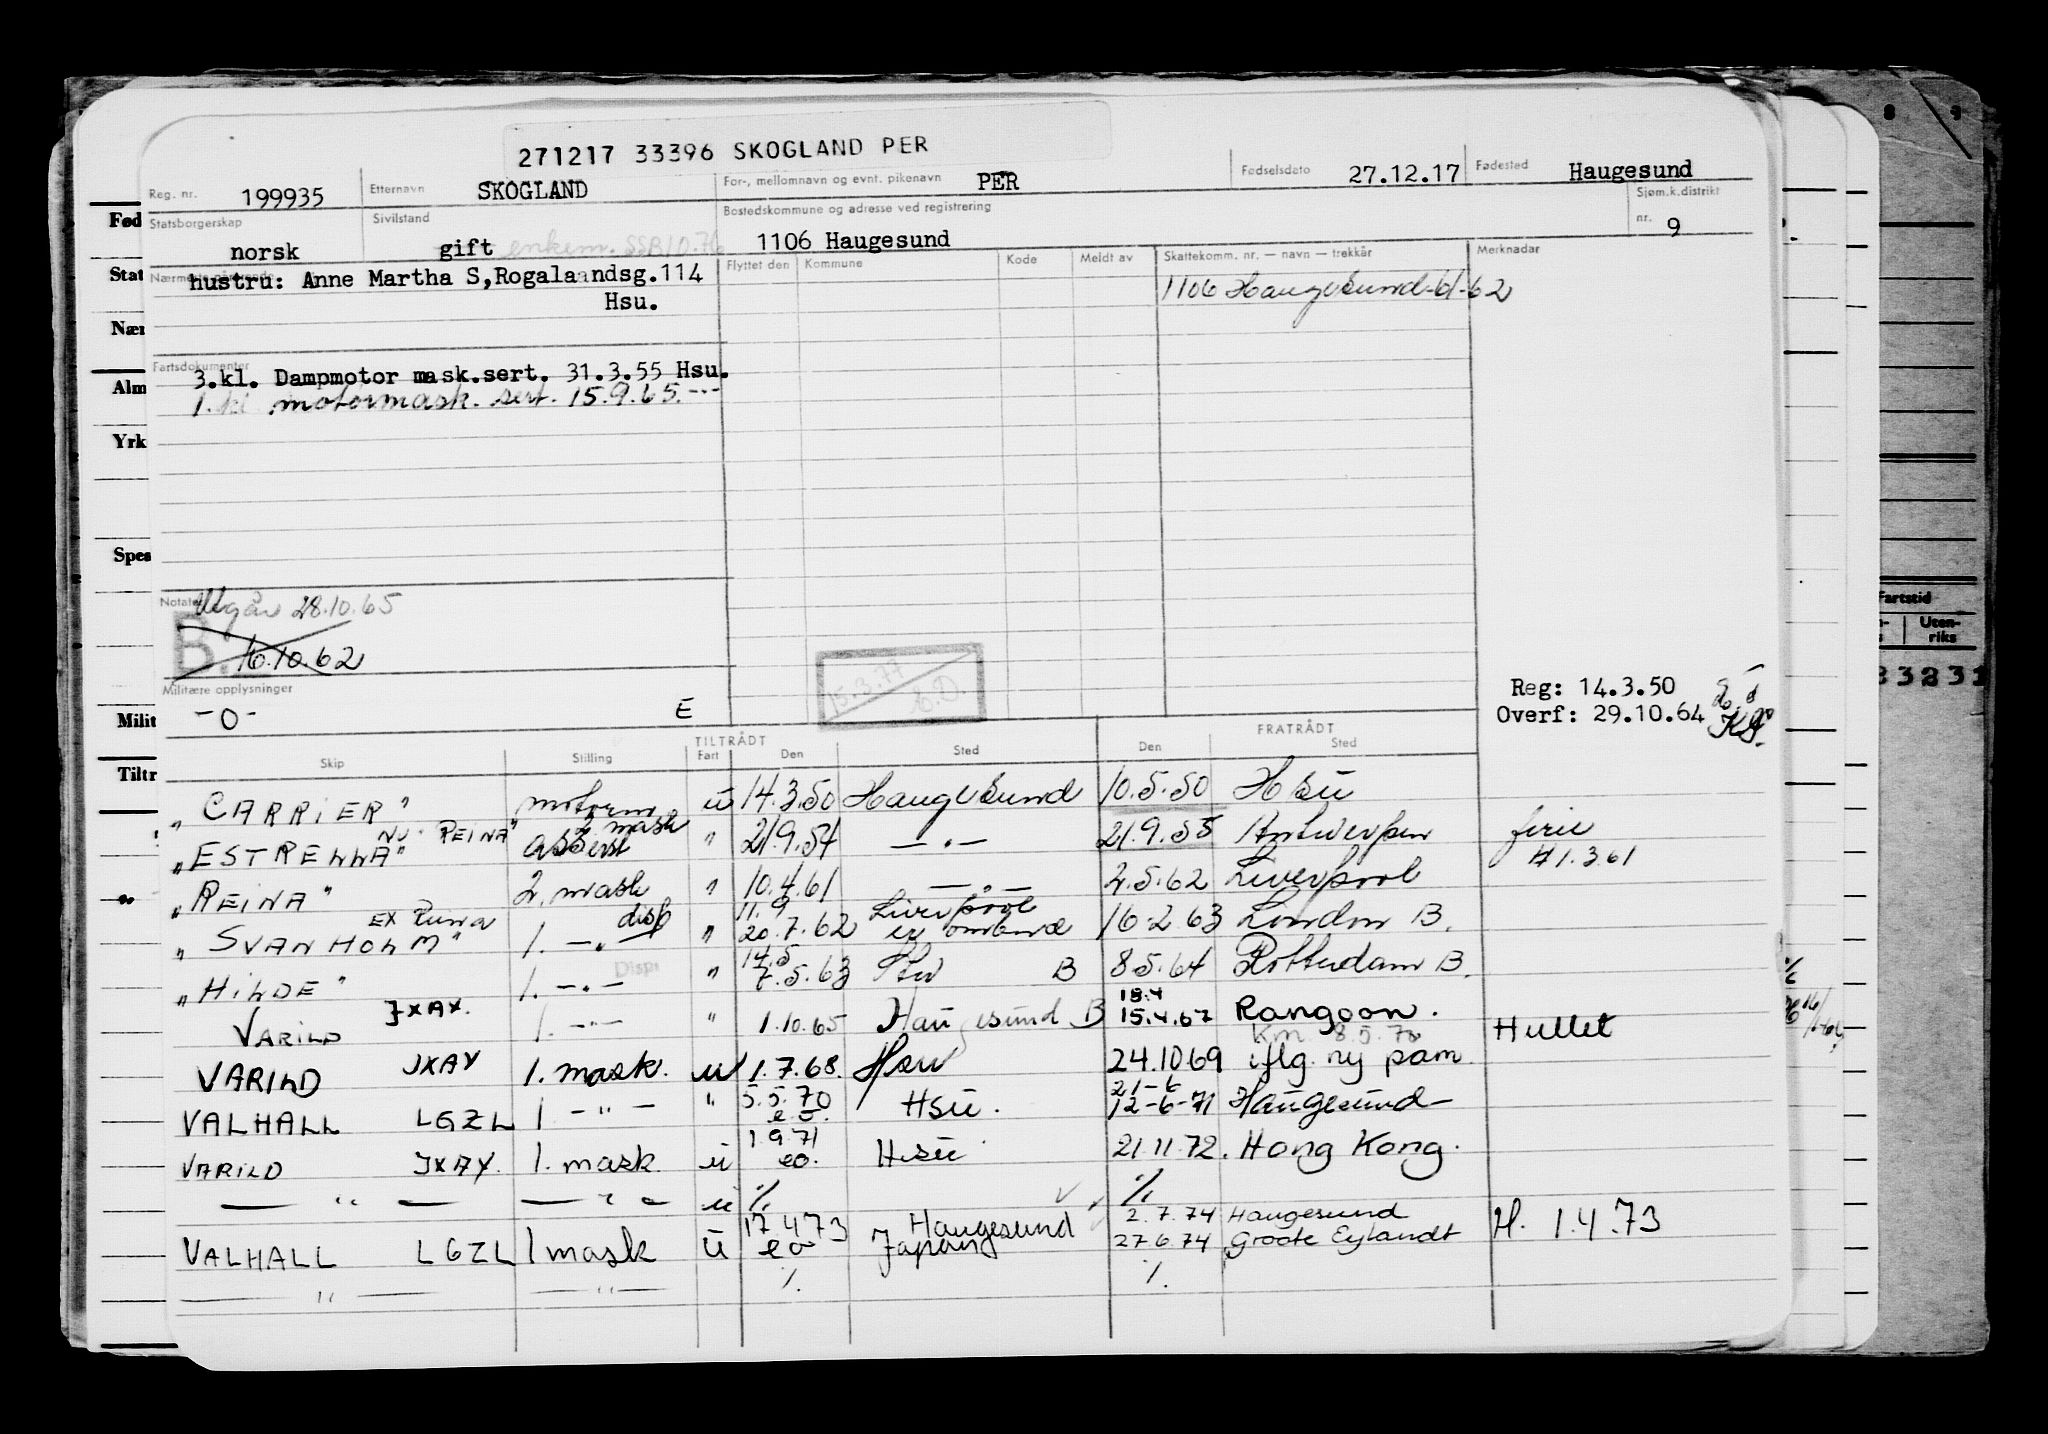 271217 33396 SKOGLAND PER
Reg. nr. 199935 Etternavn SKOGLAND For-, mellomnavn og evnt. pikenavn PER Fødselsdato 27.12.17 Fødested Haugesund
Statsborgerskap norsk Sivilstand gift enkem. SSB10.76 Bostedskommune og adresse ved registrering 1106 Haugesund Sjøm.k.distrikt nr. 9
Nærmeste pårørende Flyttet den Kommune Kode Meldt av Skattekomm. nr. — navn — trekkår Merknader
hustru: Anne Martha S, Rogalaandsg.114 1106 Haugesund-61-62
Hsu.
Fartsdokumenter
3.kl. Dampmotor mask.sert. 31.3.55 Hsu.
1. kl. motormask. sert. 15.9.65. -"-
Notater Utgår 28.10.65
B. 16.10.62
15.3.77
Militære opplysninger
-0- E
Reg: 14.3.50
Overf: 29.10.64
TILTRÅDT FRATRÅDT
Skip Stilling Fart Den Sted Den Sted
"CARRIER" motorm u 14.3.50 Haugesund 10.5.50 Hsu
NU. REINA"
"ESTRELLA" 2 mask assist " 21.9.54 — " — 21.9.55 Antwerpen ferie H 1.3.61
"REINA" 2. mask " 10.4.61 — " — 2.5.62 Liverpool
"SVANHOLM" ex Runa 1. — " — disp " 11.9 20.7.62 Liverpool er ombord 16.2.63 London B.
"HILDE" 1. — " — Disp " 14.5 7.5.63 B 8.5.64 Rotterdam B.
VARILD JXAY. 1. — " — " 1.10.65 Haugesund B 18.4 15.4.67 Rangoon. Hullet
Km. 8.5.70
VARILD JXAY 1. mask. u 1.7.68. Hsu 24.10.69 iflg. ny pam.
VALHALL LGZL 1 — " — " 5.5.70 eo. Hsu. 21-6 12-6-71 Haugesund
VARILD JXAY. 1. mask. u 1.9.71 eo. Hsu 21.11.72. Hong Kong.
— " — — " — u % %
VALHALL LGZL 1 mask u 17.4.73 eo Haugesund Japan 2.7.74 Haugesund 27.6.74 Groote Eylandt H. 1.4.73
— " — — " — % %
Fød
Stat
Nær
Alm
Yrk
Spes
Milit
Tiltr
8 9
Fartstid
Uten-
riks